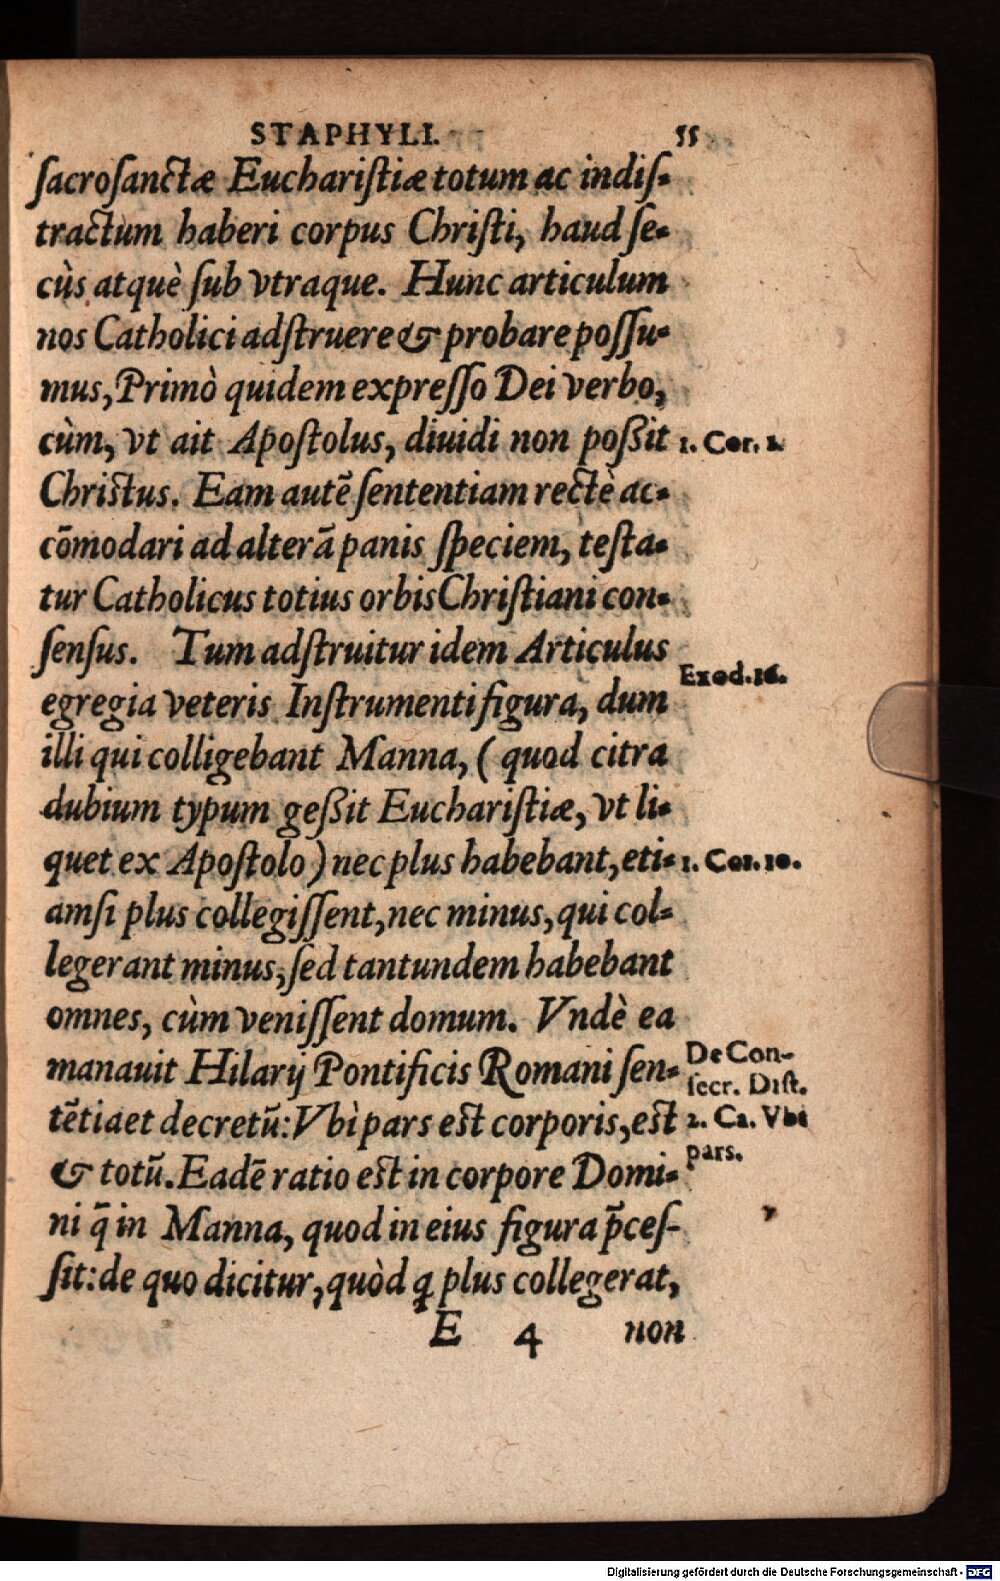 STAPHYLI. 55
sacrosanctæ Euchariſtiæ totum ac indiſ-
tractum haberi corpus Chriſti, haud ſe-
cùs atquè ſub vtraque. Hunc articulum
nos Catholici adſtruere & probare poſſu-
mus, Primò quidem expreſſo Dei verbo,
cùm, vt ait Apoſtolus, diuidi non poßit
1. Cor. 1.
Chriſtus. Eam autē ſententiam rectè ac-
cōmodari ad alterā panis ſpeciem, teſta-
tur Catholicus totius orbis Chriſtiani con-
ſenſus. Tum adſtruitur idem Articulus
Exod. 16.
egregia veteris Inſtrumenti figura, dum
illi qui colligebant Manna, ( quod citra
dubium typum geßit Euchariſtiæ, vt li-
quet ex Apoſtolo ) nec plus habebant, eti-
1. Cor. 10.
amſi plus collegiſſent, nec minus, qui col-
legerant minus, ſed tantundem habebant
omnes, cùm veniſſent domum. Vndè ea
manauit Hilarij Pontificis Romani ſen-
De Con-
ſecr. Diſt.
tētia et decretū: Vbì pars eſt corporis, eſt
2. Ca. Vbi
& totū. Eadē ratio eſt in corpore Domi-
pars.
ni q̄ in Manna, quod in eius figura p̄ceſ-
ſit: de quo dicitur, quòd q plus collegerat,
E 4 non
Digitalisierung gefördert durch die Deutsche Forschungsgemeinschaft - DFG